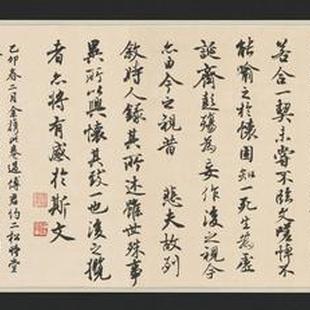 若合一契未嘗不臨文嗟悼不
能喻之於懷固知一死生為虛
誕齊彭殤為妄作後之視今
亦由今之視昔 悲夫故列
敘時人錄其所述雖世殊事
異所以興懷其致一也後之攬
者亦將有感於斯文
乙卯春二月余攜此卷過君約二松堂